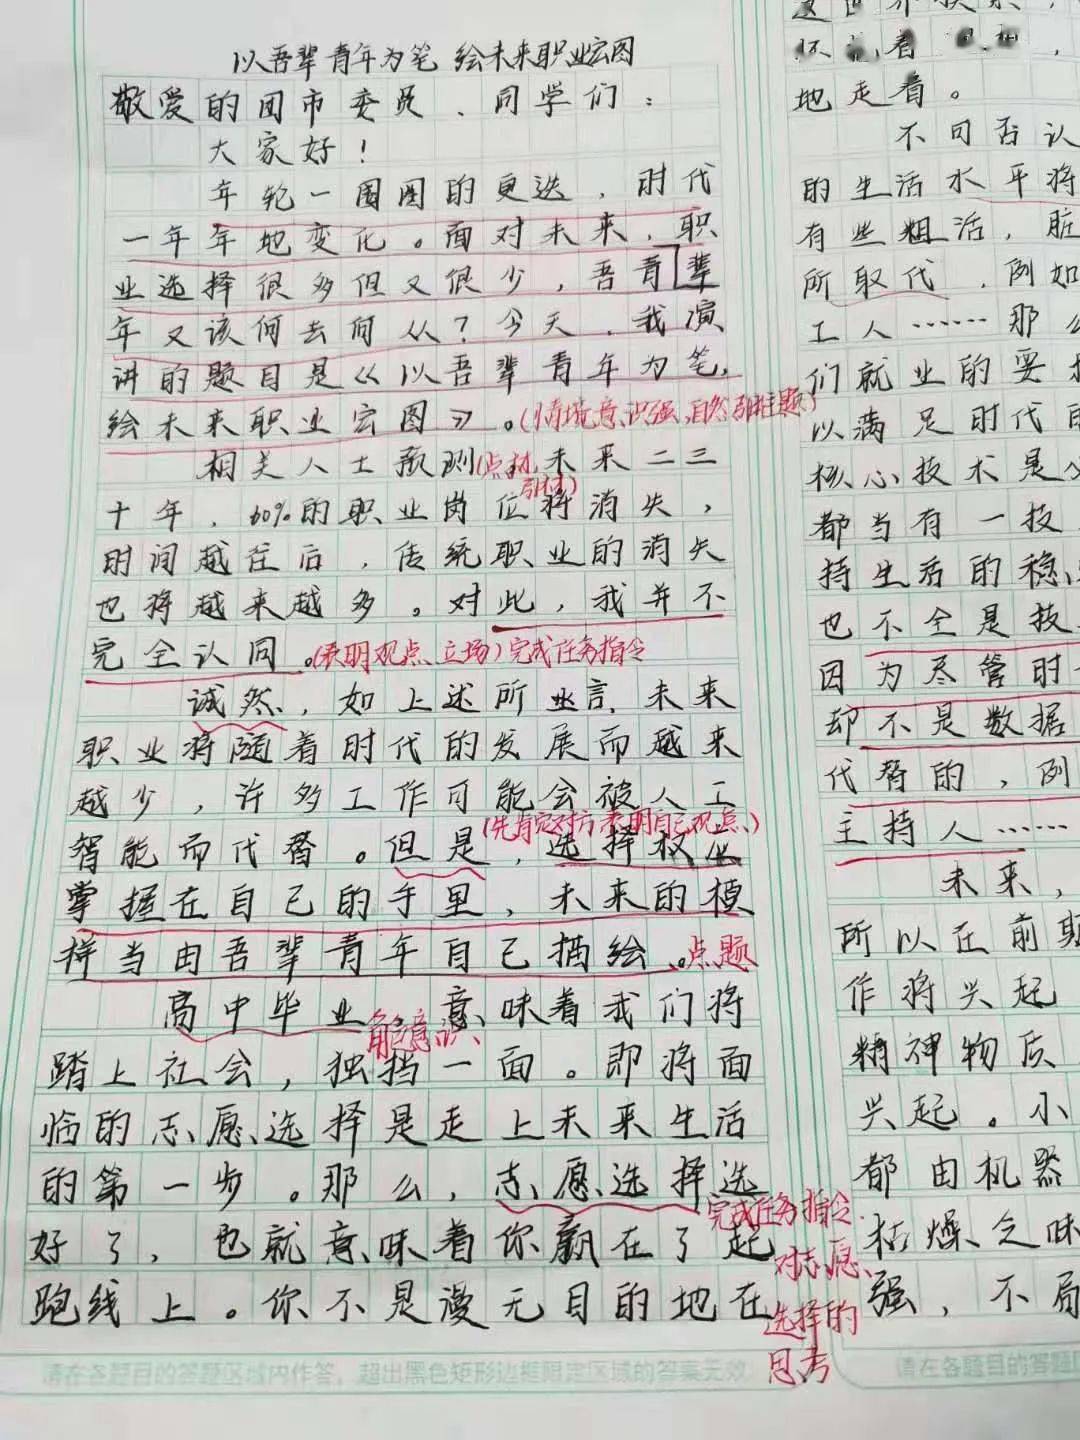 以吾辈青年为笔 绘未来职业宏图
敬爱的团市委员、同学们：
大家好！
年轮一圈圈的更迭，时代
一年年地变化。面对未来，职
业选择很多但又很少，吾青辈
年又该何去何从？今天，我演
讲的题目是《以吾辈青年为笔，
绘未来职业宏图》。(情境意识强，自然引出主题)
相关人士预测(点材 未来二三
引材)
十年，60%的职业岗位将消失，
时间越往后，传统职业的消失
也将越来越多。对此，我并不
完全认同。(表明观点、立场)完成任务指令
诚然，如上述所言，未来
职业将随着时代的发展而越来
越少，许多工作可能会被人工
(先肯定对方表明自己观点)
智能而代替。但是，选择权
掌握在自己的手里，未来的模
样当由吾辈青年自己描绘。点题
高中毕业，意味着我们将
角色意识
踏上社会，独挡一面。即将面
临的志愿选择是走上未来生活
的第一步。那么，志愿选择选
完成任务指令
好了，也就意味着你赢在了起
对志愿
跑线上。你不是漫无目的地在
选择的
思考
请在各题目的答题区域内作答，超出黑色矩形边框限定区域的答案无效
怀 看
地走着。
不可否认
的生活水平将
有些粗活，脏
所取代，例如
工人……那么
们就业的要
以满足时代
核心技术是
都当有一技
持生活的稳
也不全是技
因为尽管时
却不是数据
代替的，例
主持人……
未来，
所以在前期
作将兴起
精神物质
兴起。小
都由机器
枯燥乏味
强，不局
请在各题目的答题